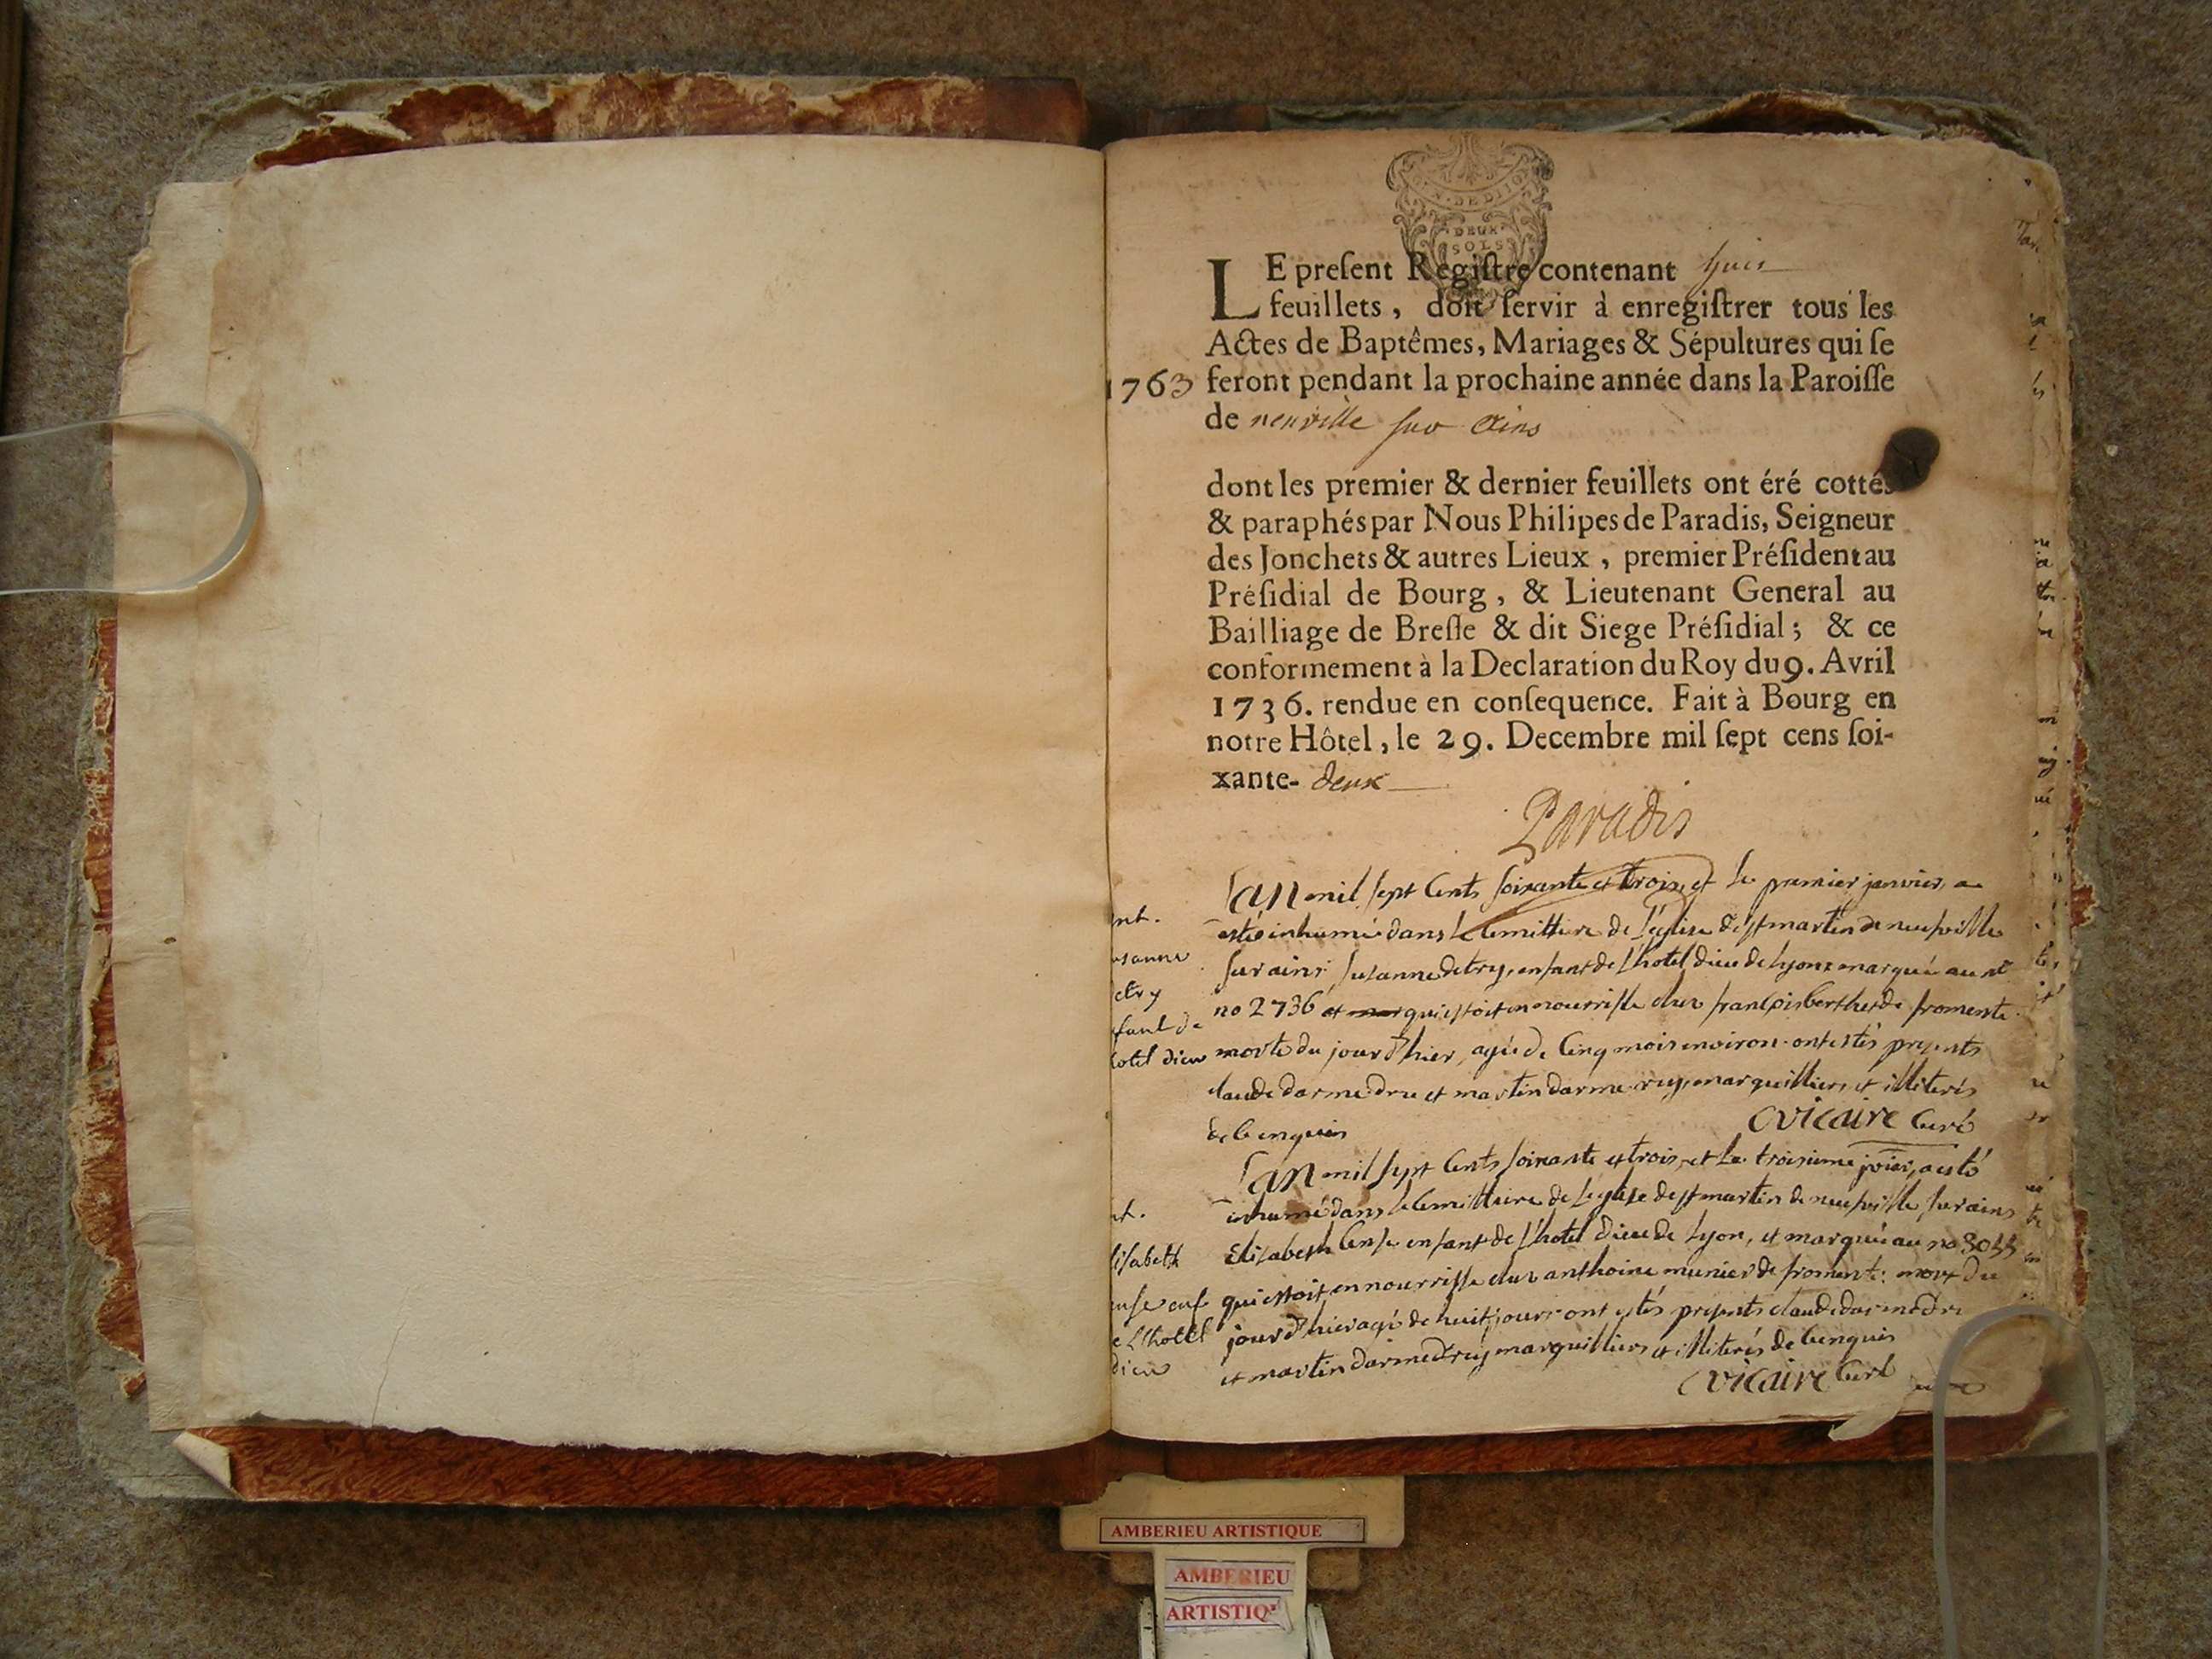 DE DIJO
DEUX
SOLS
LE preſent Regiſtre contenant huit
feuillets, doit ſervir à enregiſtrer tous les
Actes de Baptêmes, Mariages & Sépultures qui ſe
1763 feront pendant la prochaine année dans la Paroiſſe
de neuville sur Ains
dont les premier & dernier feuillets ont éré cottés
& paraphés par Nous Philipes de Paradis, Seigneur
des Jonchets & autres Lieux, premier Préſident au
Préſidial de Bourg, & Lieutenant General au
Bailliage de Breſſe & dit Siege Préſidial; & ce
conformement à la Declaration du Roy du 9. Avril
1736. rendue en conſequence. Fait à Bourg en
notre Hôtel, le 29. Decembre mil ſept cens ſoi-
xante- deux
Paradis
Lan mil sept Cents soixante et trois et le premier janvier a
esté inhumé dans le Cemittere de l'église de st martin de neufville
sur ains suzanne detry, enfant de l'hotel dieu de lyon marqué au
no 2736 qui estoit en nourrisse chez françois berthet de fromente
morte du jour d'hier, agée de Cinq mois environ ont estés presents
claude darmedru et martin darme ruy, marguilliers et illiterés
de ce enquis
Cvicaire Curé
Lan mil sept Cents soixante et trois, et le troisieme jvier, a esté
inhumé dans le Cemittaire de l'eglise de st martin de neufville sur ains
Elizabeth Cense enfant de l'hotel dieu de Lyon, et marqué au no
qui estoit en nourrisse chez anthoine munier de fromente: mort du
jour d'hier agé de huit jours ont estés presents claude darmedru
et martin darmedruy marguilliers et illiterés de ce enquis
Cvicaire Curé
nt.
usanne
etry
fant de
hotel dieu
nt.
lisabeth
ense enf
e L'hotel
dieu
AMBERIEU ARTISTIQUE
AMBERIEU
ARTISTIQ